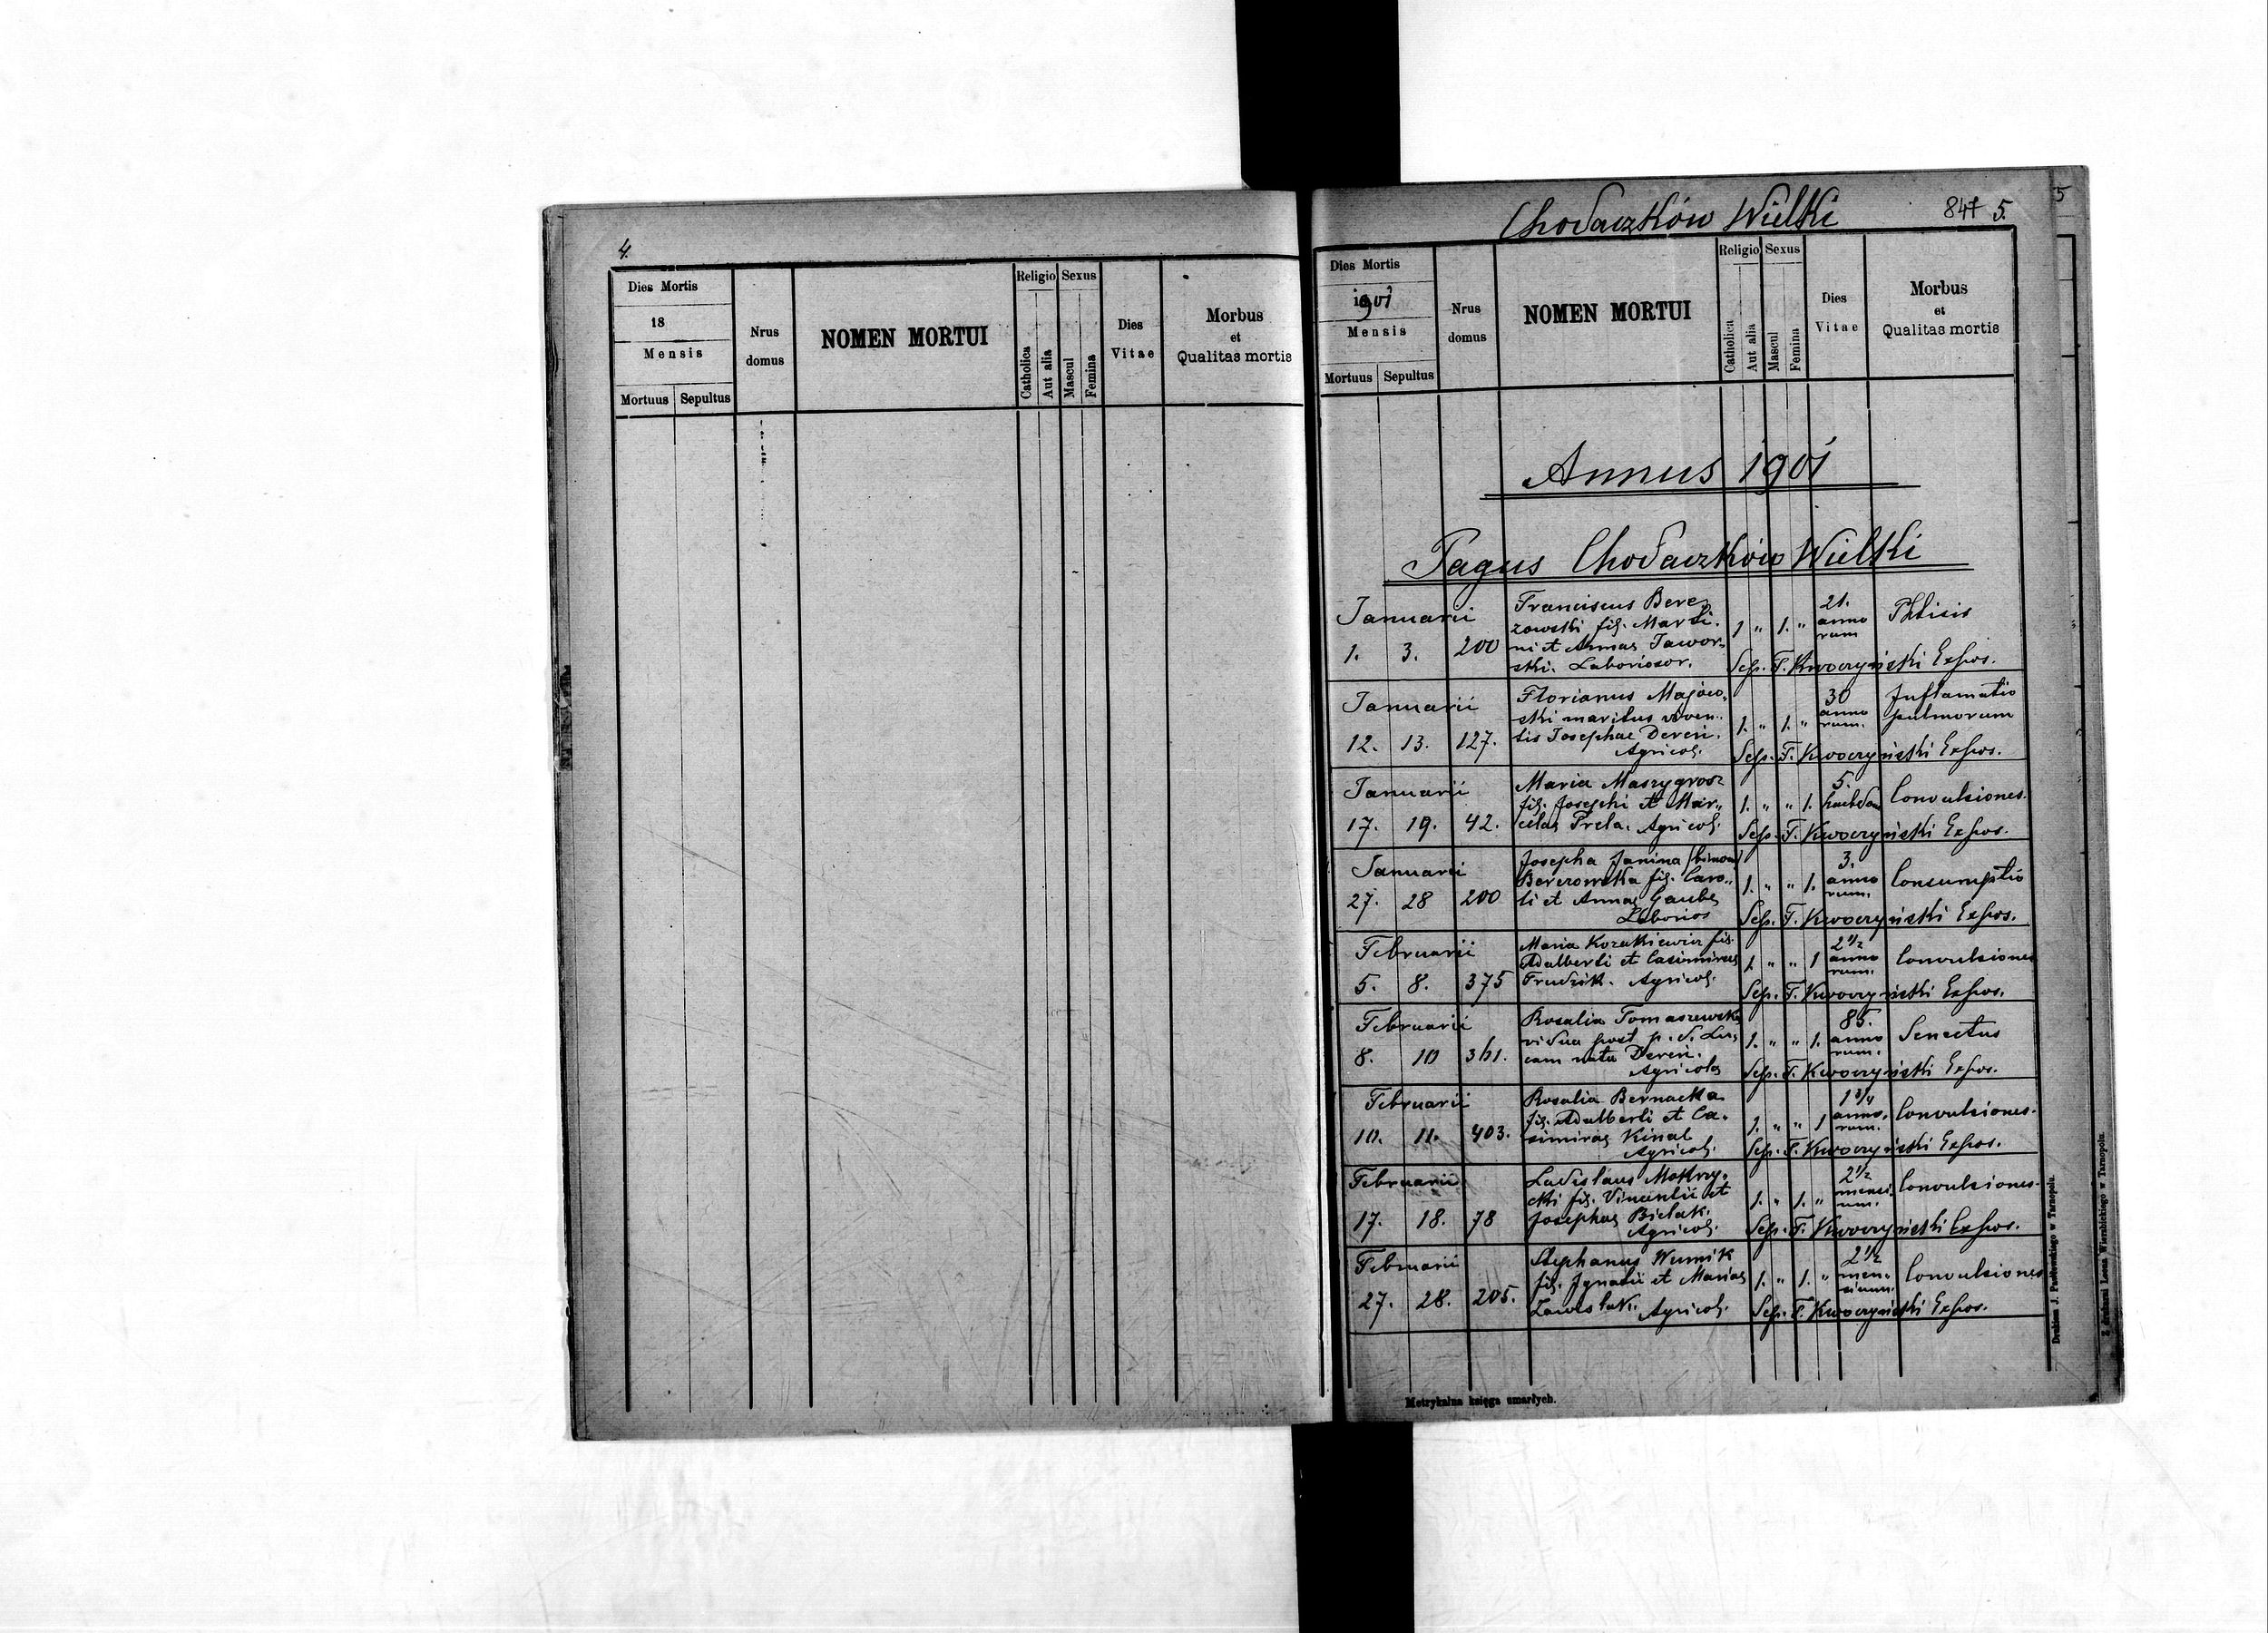 4.
Dies Mortis
18
Mensis
Mortuus Sepultus
Nrus
domus
NOMEN MORTUI
Religio Sexus
Catholica
Aut alia
Mascul
Femina
Dies
Vitae
Morbus
et
Qualitas mortis
Chodaczków Wielki
847 5.
5
Dies Mortis
1901
Mensis
Mortuus Sepultus
Nrus
domus
NOMEN MORTUI
Religio Sexus
Catholica
Aut alia
Mascul
Femina
Dies
Vitae
Morbus
et
Qualitas mortis
Annus 1901
Pagus Chodaczków Wielki
Januarii
1. 3. 200
Franciscus Bere-
zowski fil. Marti-
ni et Annae Jawor-
ski. Laboriosor.
1 " 1. "
21.
anno
rum
Phtisis
Sep. F. Kwoczyński Expos.
Januarii
12. 13. 127.
Florianus Majew-
ski maritus viven-
tis Josephae Dereń.
Agricol.
1. " 1. "
30
anno
rum.
Inflamatio
pulmorum
Sep. F. Kwoczyński Expos.
Januarii
17. 19. 42.
Maria Maszygrosz
fil. Josephi et Mar-
celae Prela. Agricol.
1. " " 1.
5.
hebdom
Convulsiones.
Sep. F. Kwoczyński Expos.
Januarii
27. 28 200
Josepha Janina (binom)
Berezowska fil. Caro-
li et Annae Gaube
Laborios
1. " " 1.
3.
anno
rum.
Consumptio
Sep. F. Kwoczyński Expos.
Februarii
5. 8. 375
Maria Kozakiewicz fil.
Adalberti et Casimirae
Trudzik. Agricol.
1. " " 1
2 1/2
anno
rum.
Convulsiones
Sep. F. Kwoczyński Expos.
Februarii
8. 10 361.
Rosalia Tomaszewska
vidua post p. d. Lu-
cam nata Dereń.
Agricola
1. " " 1.
85.
anno
rum.
Senectus
Sep. F. Kwoczyński Expos.
Februarii
10. 11. 403.
Rosalia Bernacka
fil. Adalberti et Ca-
simirae Kinal
Agricol.
1. " " 1
1 3/4
anno.
rum.
Convulsiones.
Sep. F. Kwoczyński Expos.
Februarii
17. 18. 78
Ladislaus Mokrzy-
cki fil. Vincentii et
Josephae Bielak.
Agricol.
1. " 1. "
2 1/2
mensi
um.
Convulsiones.
Sep. F. Kwoczyński Expos.
Februarii
27. 28. 205.
Stephanus Wumik
fil. Ignatii et Mariae
Zawiślak. Agricol.
1. " 1. "
2 1/2
men-
sium.
Convulsiones
Sep. F. Kwoczyński Expos.
Metrykalna księga umarłych.
Drukiem J. Pawłowskiego w Tarnopolu.
Z drukarni Leona Wierzbickiego w Tarnopolu.